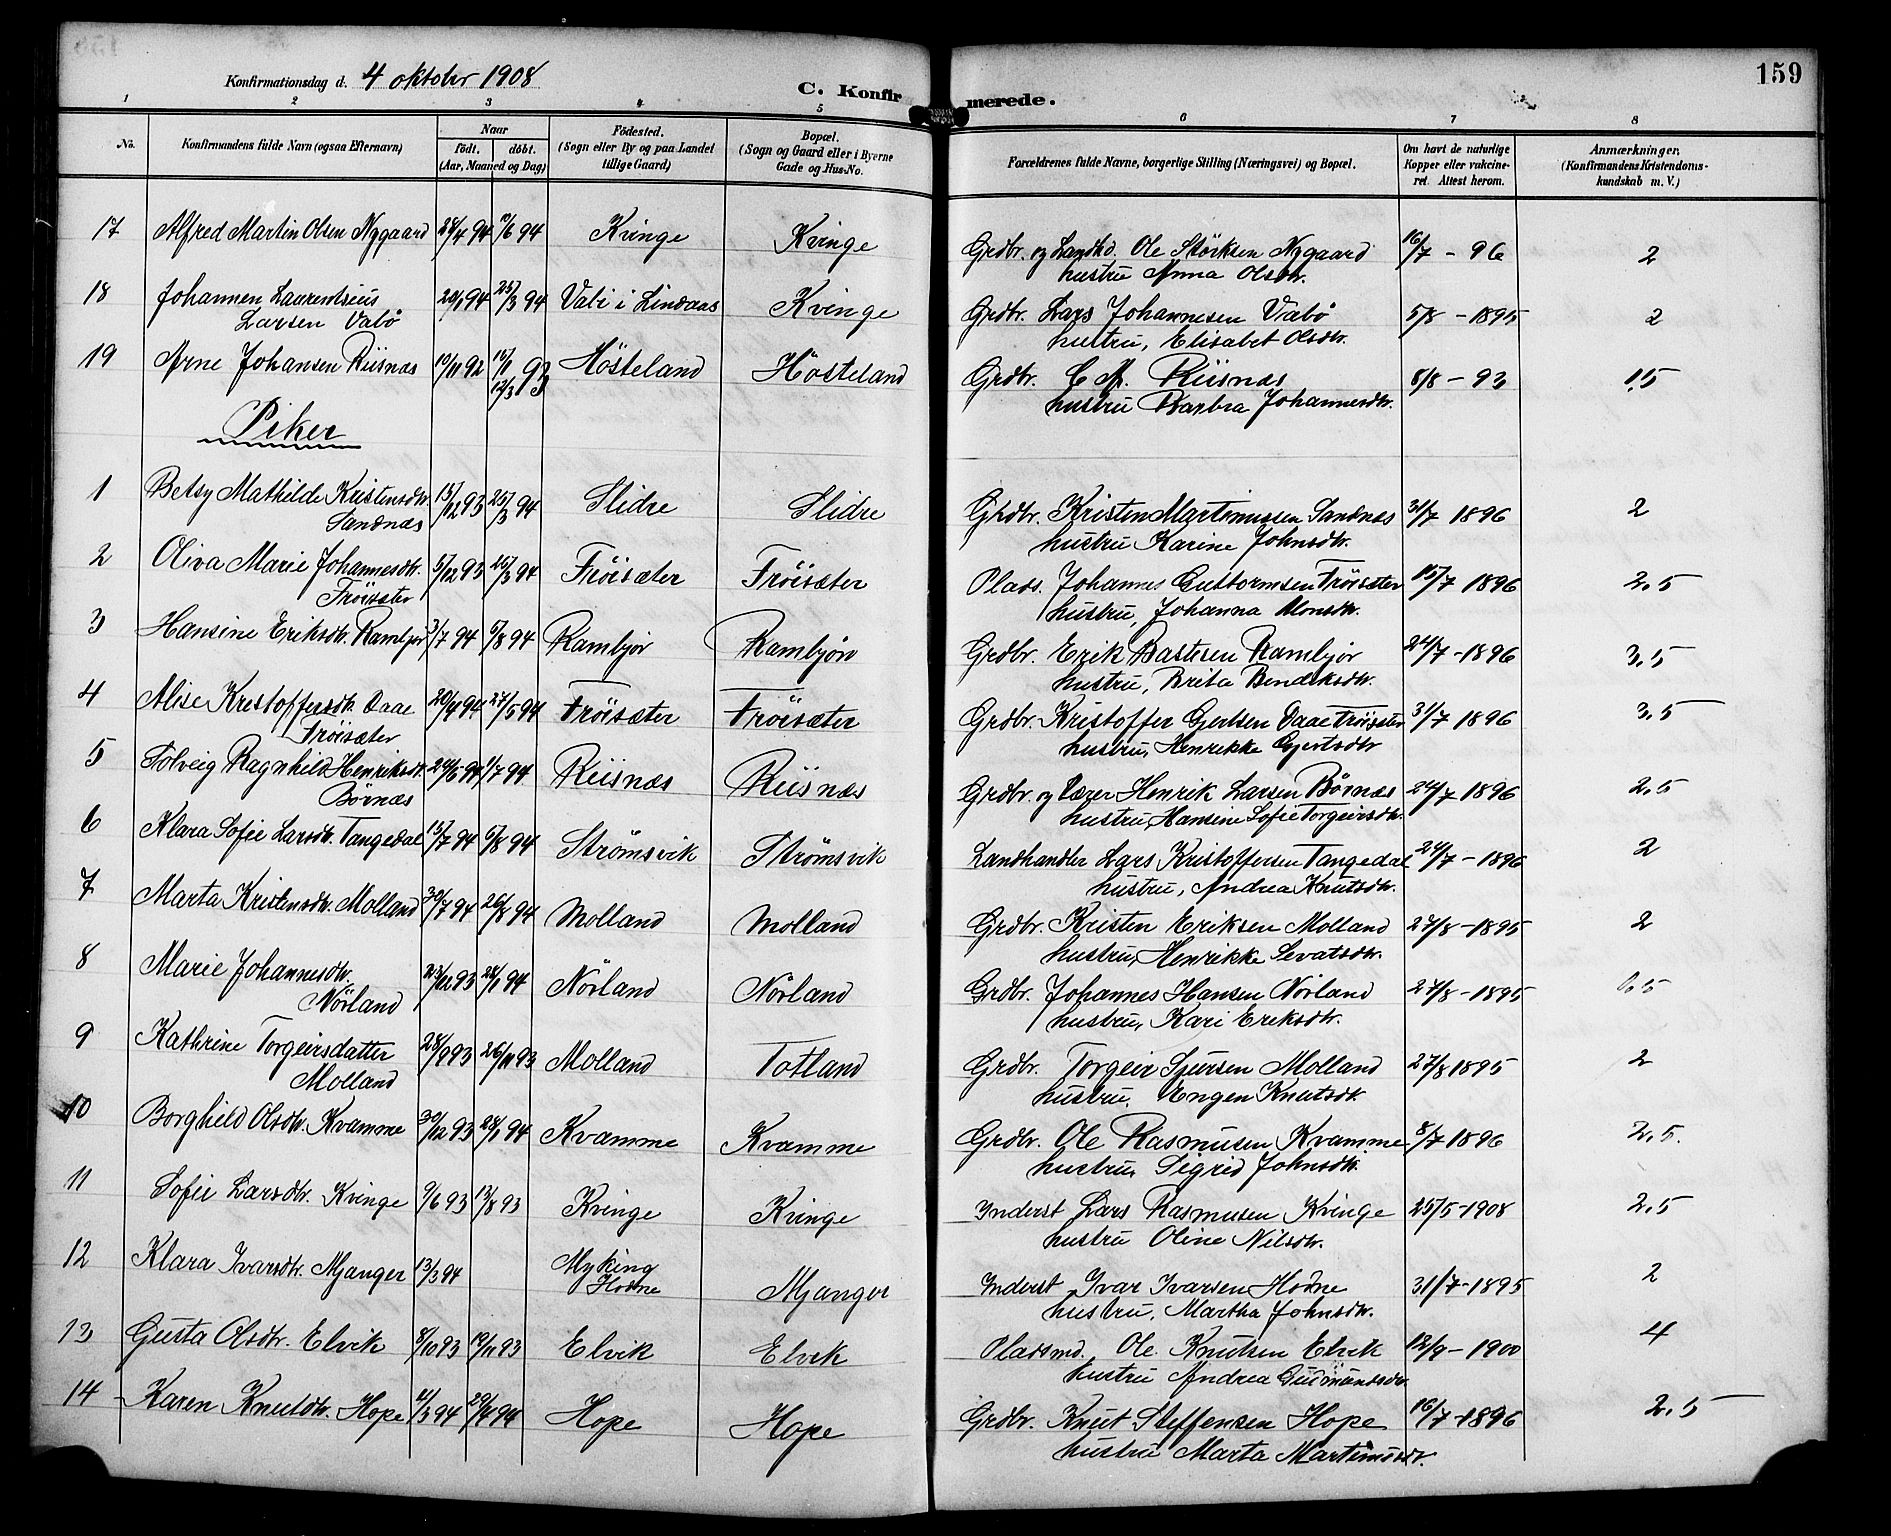 159
Konfirmationsdag d. 4 oktober 1908
C. Konfirmerede.
1 2 3 4 5 6 7 8
No. Konfirmandens fulde Navn (ogsaa Efternavn) Naar født. døbt. (Aar, Maaned og Dag) Fødested. (Sogn eller By og paa Landet tillige Gaard) Bopæl. (Sogn og Gaard eller i Byerne Gade og Hus-No. Forældrenes fulde Navne, borgerlige Stilling (Næringsvei) og Bopæl. Om havt de naturlige Kopper eller vakcineret. Attest herom. Anmærkninger. (Konfirmandens Kristendomskundskab m. V.)
17 Alfred Martin Olsen Nygaard 28/4 94 10/6 94 Kvinge Kvinge Grdbr. og Landhd. Ole Størksen Nygaard 16/7 - 96 2
hustru Anna Olsdtr.
18 Johannen Laurentsius 94 25/3 94 i Lindaas Kvinge Grdbr. Lars Johannesen Vabø 5/8 - 1895 2
Larsen Vabø hustru, Elisabet Olsdtr.
19 Arne Johansen Riisnæs 10/11 92 93 Hösteland Hösteland Grdbr. Riisnæs 8/8 - 93 1.5
12/3 hustru Barbra Johannesdtr.
Piker
1 Betsy Mathilde Kristensdtr. 15/12 93 25/3 94 Slidre Slidre Grdbr. Kristen Martinussen Sandnæs 31/7 1896 2
Sandnæs hustru Karine Johnsdtr.
2 Oliva Marie Johannesdtr. 5/12 93 25/3 94 Fröisæter Fröisæter Plads. Johannes Guttormsen Fröisæter 15/7 1896 2,5
Fröisæter hustru, Johanna Monsdtr.
3 Hansine Eriksdtr. Rambjør 3/7 94 5/8 94 Rambjør Rambjørn Grdbr. Erik Bastesen Rambjør 24/7 - 1896 3,5
hustru, Brita Bendiksdtr.
4 Alise Kristoffersdtr. Daae 20/4 94 27/5 94 Fröisæter Fröisæter Grdbr. Kristoffer Gjertsen Daae Fröisæter 31/7 1896 3,5
Fröisæter hustru, Henrikke Gjertsdtr
5 Solveig Ragnhild Henriksdtr. 24/5 94 1/7 94 Riisnæs Riisnæs Grdbr. og Lærer Henrik Larsen Børnæs 24/7 1896 2,5
Børnæs hustru, Hansene Sofie Torgeirsdtr.
6 Klara Sofie Larsdtr. Tangedal 15/7 94 5/8 94 Strömsvik Strömsvik Landhandler Lars Kristoffersen Tangedal 24/7 - 1896 2
hustru, Andrea Knutsdtr.
7 Marta Kristensdtr. Molland 30/7 94 26/8 94 Molland Molland Grdbr. Kristen Eriksen Molland 27/8 - 1895 2
hustru, Henrikke Sevatsdtr.
8 Marie Johannesdtr. 23/12 93 28/1 94 Nörland Nörland Grdbr. Johannes Hansen Nörland 27/8 - 1895
Nörland hustru, Kari Eriksdtr.
9 Kathrine Torgeirsdatter 28/9 93 26/11 93 Molland Totland Grdbr. Torgeir Sjursen Molland 27/8 1895 2
Molland hustru. Engen Knutsdtr.
10 Borghild Olsdtr. Kvamme 30/12 93 28/1 94 Kvamme Kvamme Grdbr. Ole Rasmusen Kvamme 8/7 1896 2,5.
hustru, Sigrid Johnsdtr.
11 Sofie Larsdtr. Kvinge 9/6 93 13/8 93 Kvinge Kvinge Inderst Lars Rasmusen Kvinge 25/5 - 1908 2,5
hustru Oline Nilsdtr.
12 Klara Ivarsdtr. Mjanger 13/3 94 Myking Mjanger Inderst Ivar Ivarsen Hodne 31/7 - 1895 2
Hodne hustru, Martha Johnsdtr.
13 Gusta Olsdtr. Elvik 8/10 93 19/11 93 Elvik Elvik Pladsmd. Ole Knutsen Elvik 12/9 - 1900 4
hustru Andrea Gudmundsdtr.
14 Karen Knutsdtr. Hope 4/3 94 29/4 94 Hope Hope Grdbr. Knut Steffensen Hope 16/7 - 1896 2,5
hustru Marta Martinusdtr.